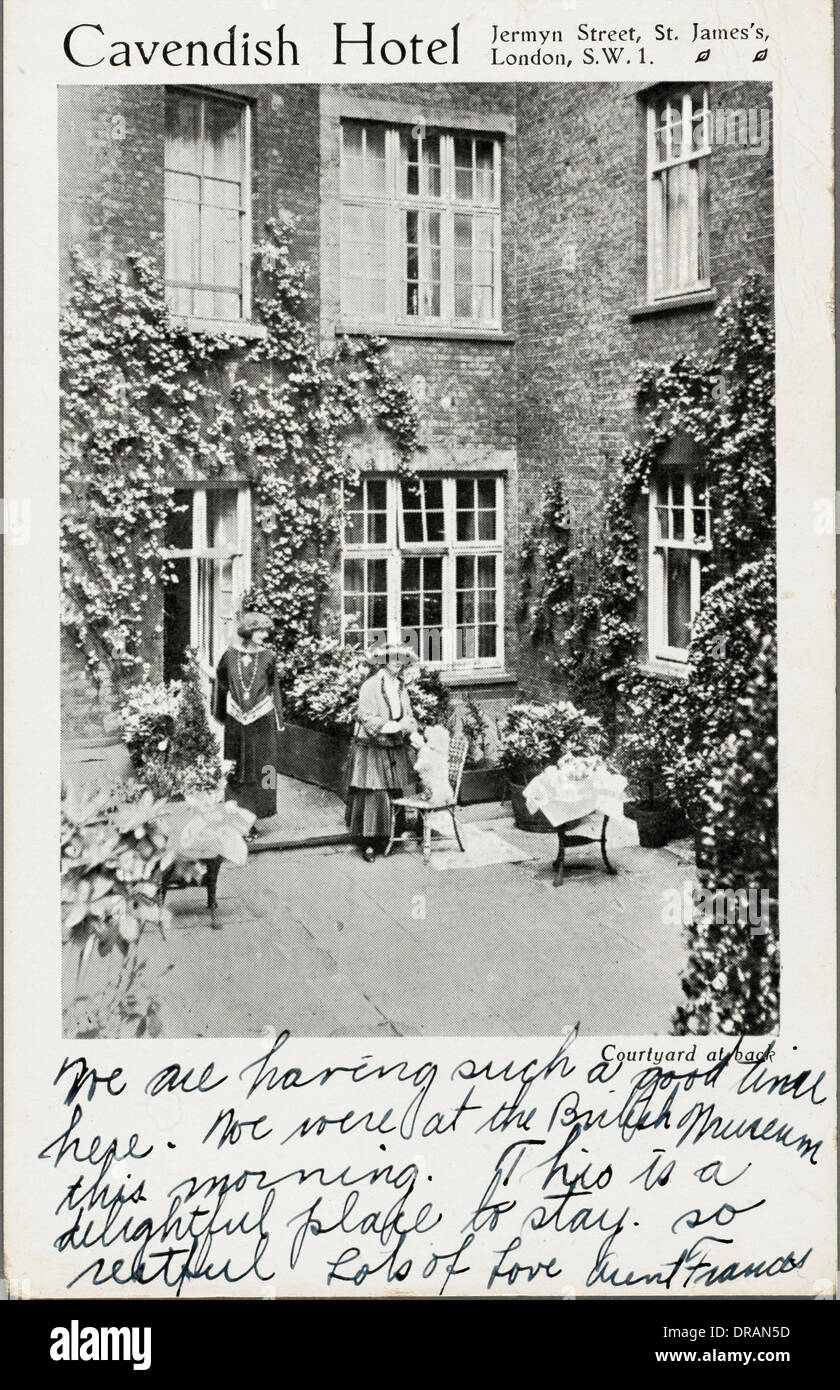 Cavendish Hotel
Jermyn Street, St. James's,
London, S.W.1.
Courtyard at back
We are having such a good time
here. We were at the British Museum
this morning. This is a
delightful place to stay. so
restful Lots of Love Aunt Frances
alamy
Image ID: DRAN5D
www.alamy.com